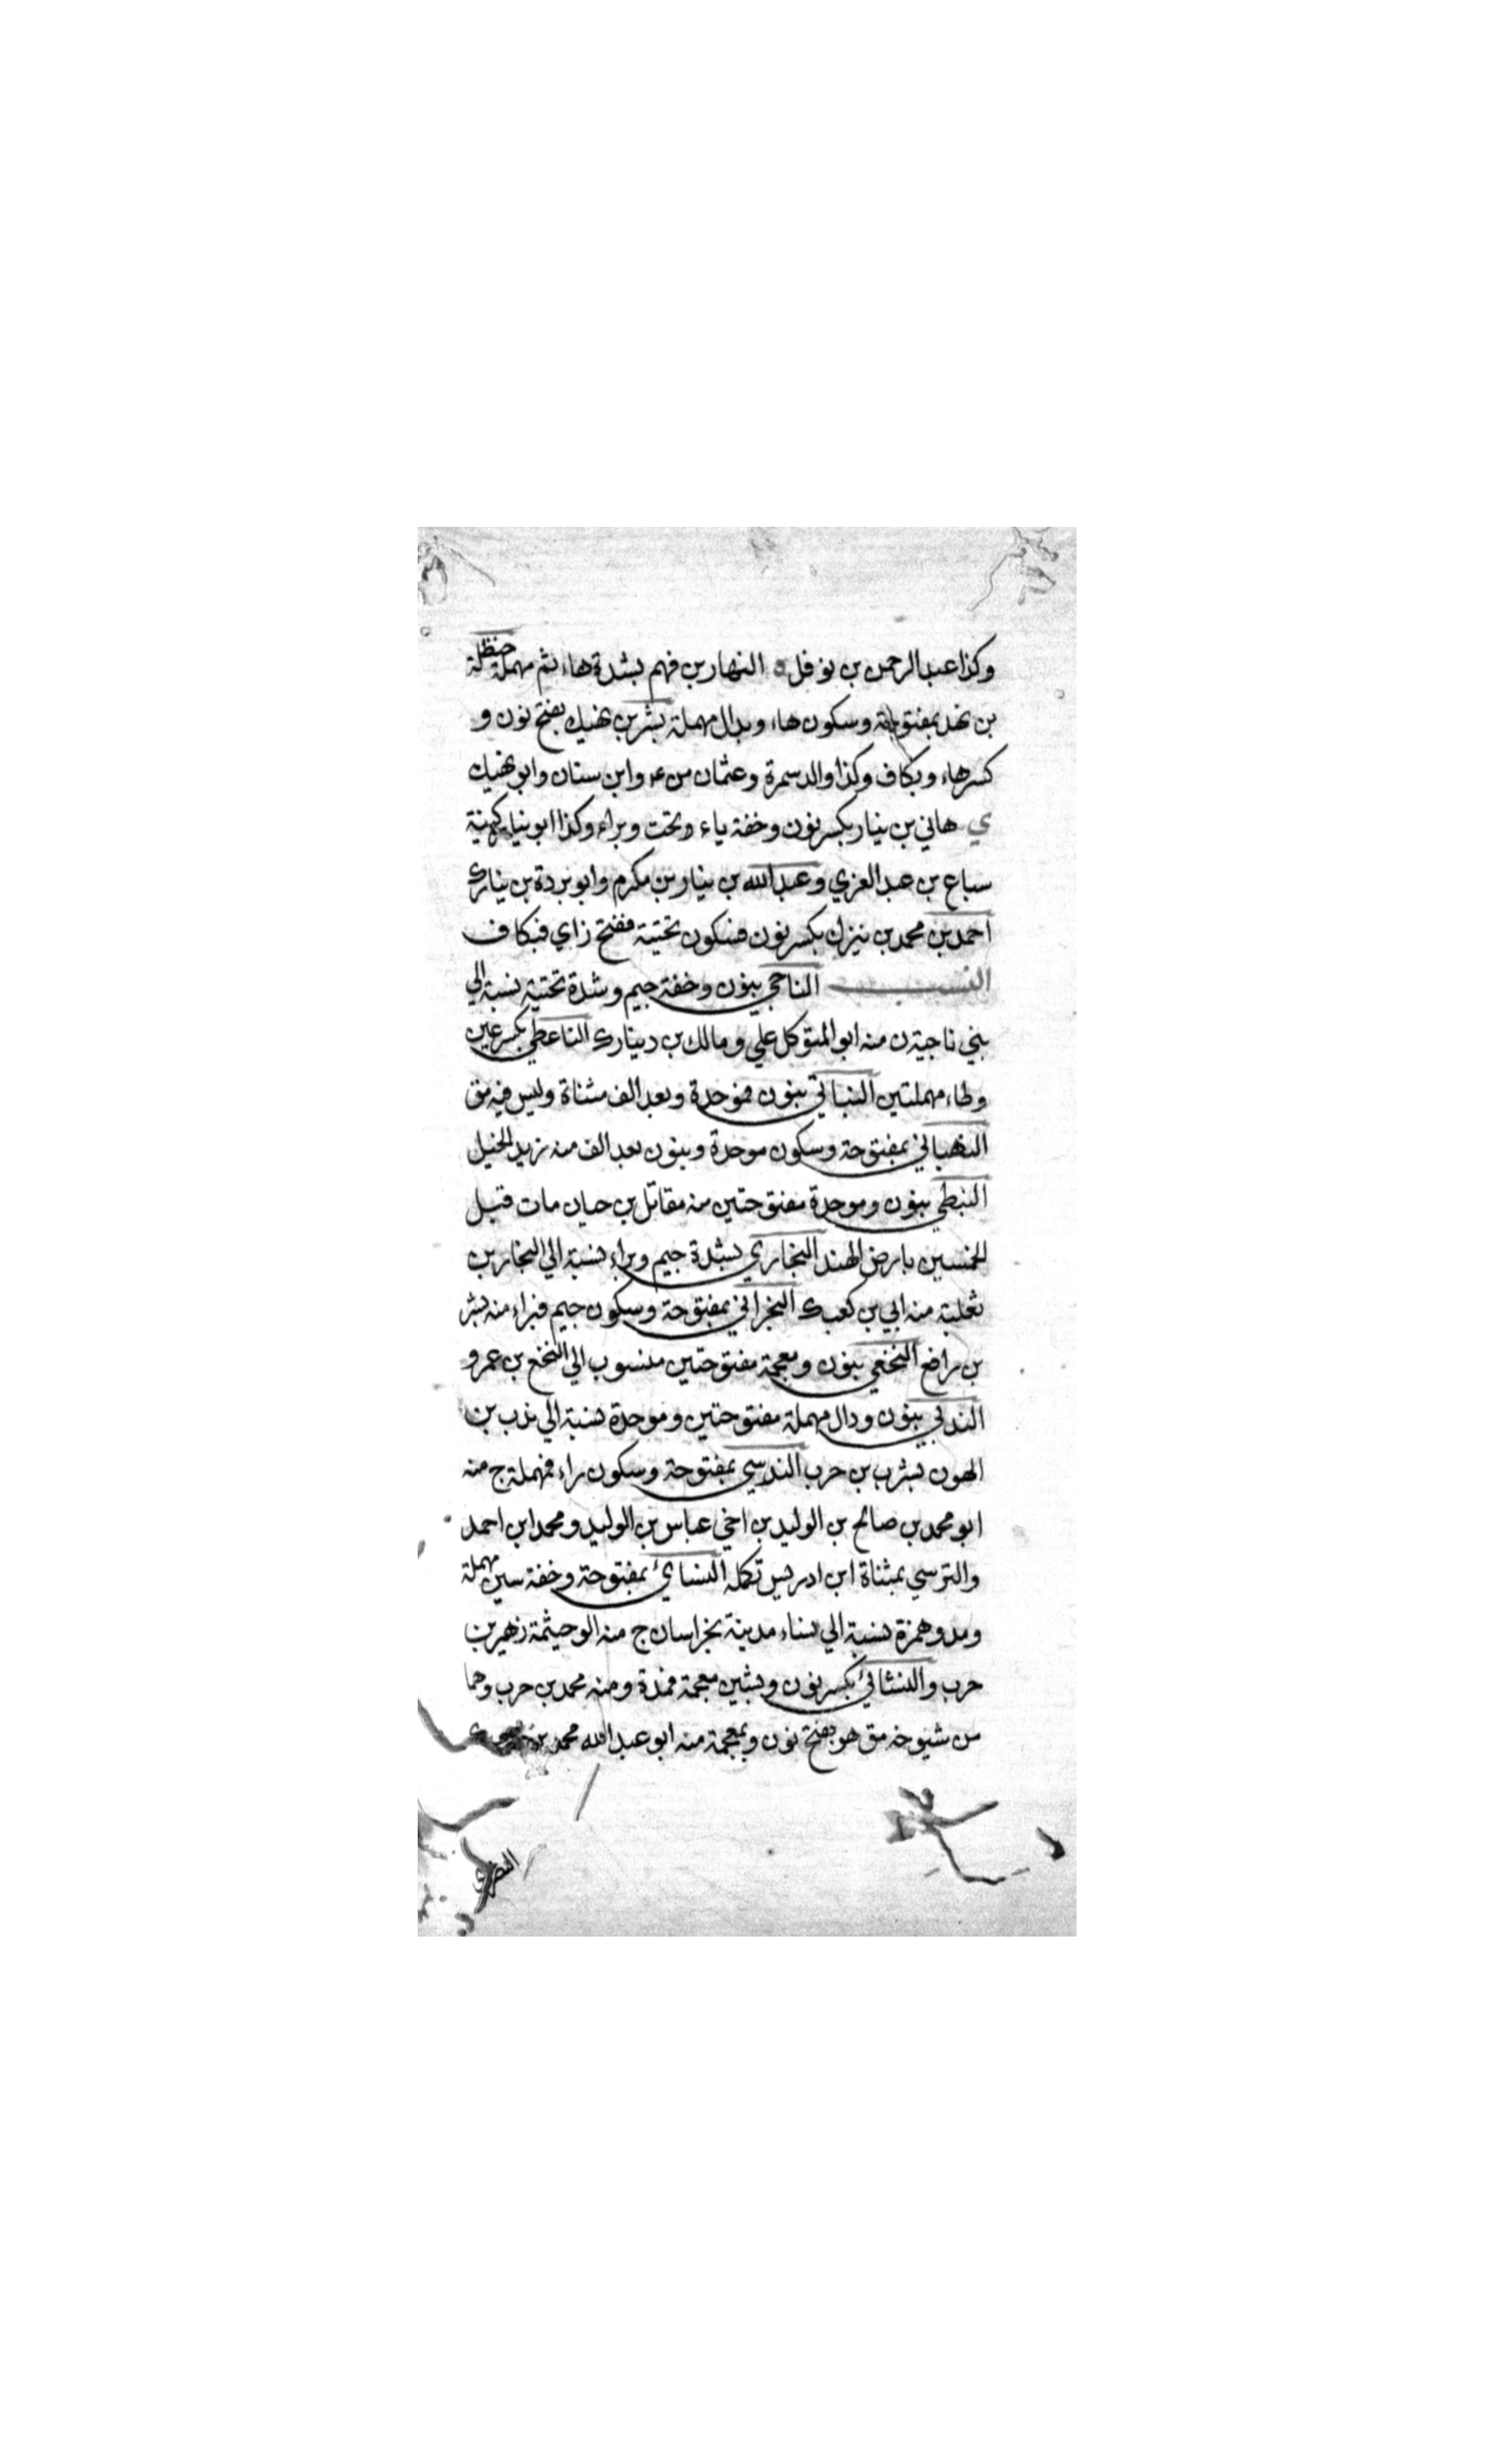 وكذا عبد الرحمن بن نوفل النهار بن فهم بشدة هاء ثم مهملة حنظلة
بن نهد بمفتوحة وسكون هاء وبدال مهملة بشر بن نهيك بفتح نون و
كسر هاء وبكاف وكذا والد سمرة وعثمان من وابن سنان وابو نهيك
ي هاني بن نيار بكسر نون وخفة ياء وتحت وبراء وكذا ابو نيار كهينة
سباع بن عبد العزي وعبد الله بن نيار بن مكرم وابو بردة بن نيار ك
احمد بن محمد بن نيزك بكسر نون فسكون تحتية ففتح زاي فبكاف
النسب الناجي بنون وخفة جيم وشدة تحتية نسبة الي
بني ناجية ن منه ابو المتوكل علي ومالك بن دينار ك الناعطي بكسر عين
وطاء مهملتين النباتي بنون فموحدة وبعد الف مثناة وليس فيه مق
النبهاني بمفتوحة وسكون موحدة وبنون بعد الف منه زيد الخيل
النبطي بنون وموحدة مفتوحتين منه مقاتل بن حيان مات قبل
الخمسين بارض الهند النجاري بشدة جيم وبراء نسبة الي النجار بن
ثعلبة منه ابي بن كعب ك النجراني بمفتوحة وسكون جيم فبراء منه بشر
بن رافع النخعي بنون ومعجمة مفتوحتين منسوب الي النخع بن عمرو
الندبي بنون ودال مهملة مفتوحتين وموحدة نسبة الي ندب بن
الهون بشر بن حرب الندسي بمفتوحة وسكون راء فمهملة ج منه
ابو محمد بن صالح بن الوليد بن اخي عباس بن الوليد ومحمد ابن احمد
والترسي بمثناة ابن ادريس تكمله النسائ بمفتوحة وخفة سين مهملة
ومد وهمزة نسبة الي نساء مدينة بخراسان ج منه ابو خيثمة زهير بن
حرب والنشائ بكسر نون وبشين معجمة فمدة ومنه محمد بن حرب وهما
من شيوخه مق هو بفتح نون وبمعجمة منه ابو عبد الله محمد بن
النصري